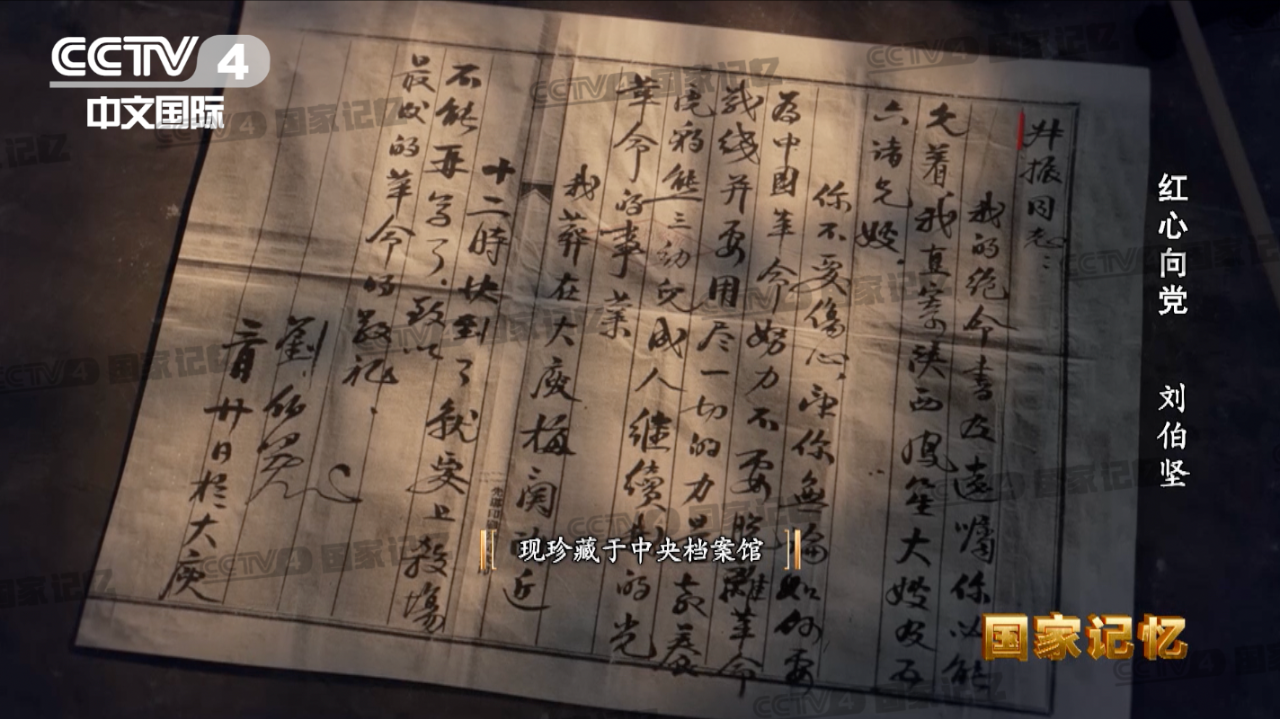 CCTV 4
中文国际
叔振同志：
我的絕命書及遺嘱你必能
见着我直寄陕西鳳笙大嫂及五
六诸兄嫂.
你不要傷心,望你無論如何要
為中國革命努力不要脱離革命
战线并要用尽一切的力量教养
虎豹熊三幼兒成人继續我的光
革命的事業
我葬在大庾梅関附近
十二時快到了就要上殺場
不能再写了.致以
最后的革命的敬礼、
劉伯堅
三月廿日於大庾
现珍藏于中央档案馆
红心向党 刘伯坚
国家记忆